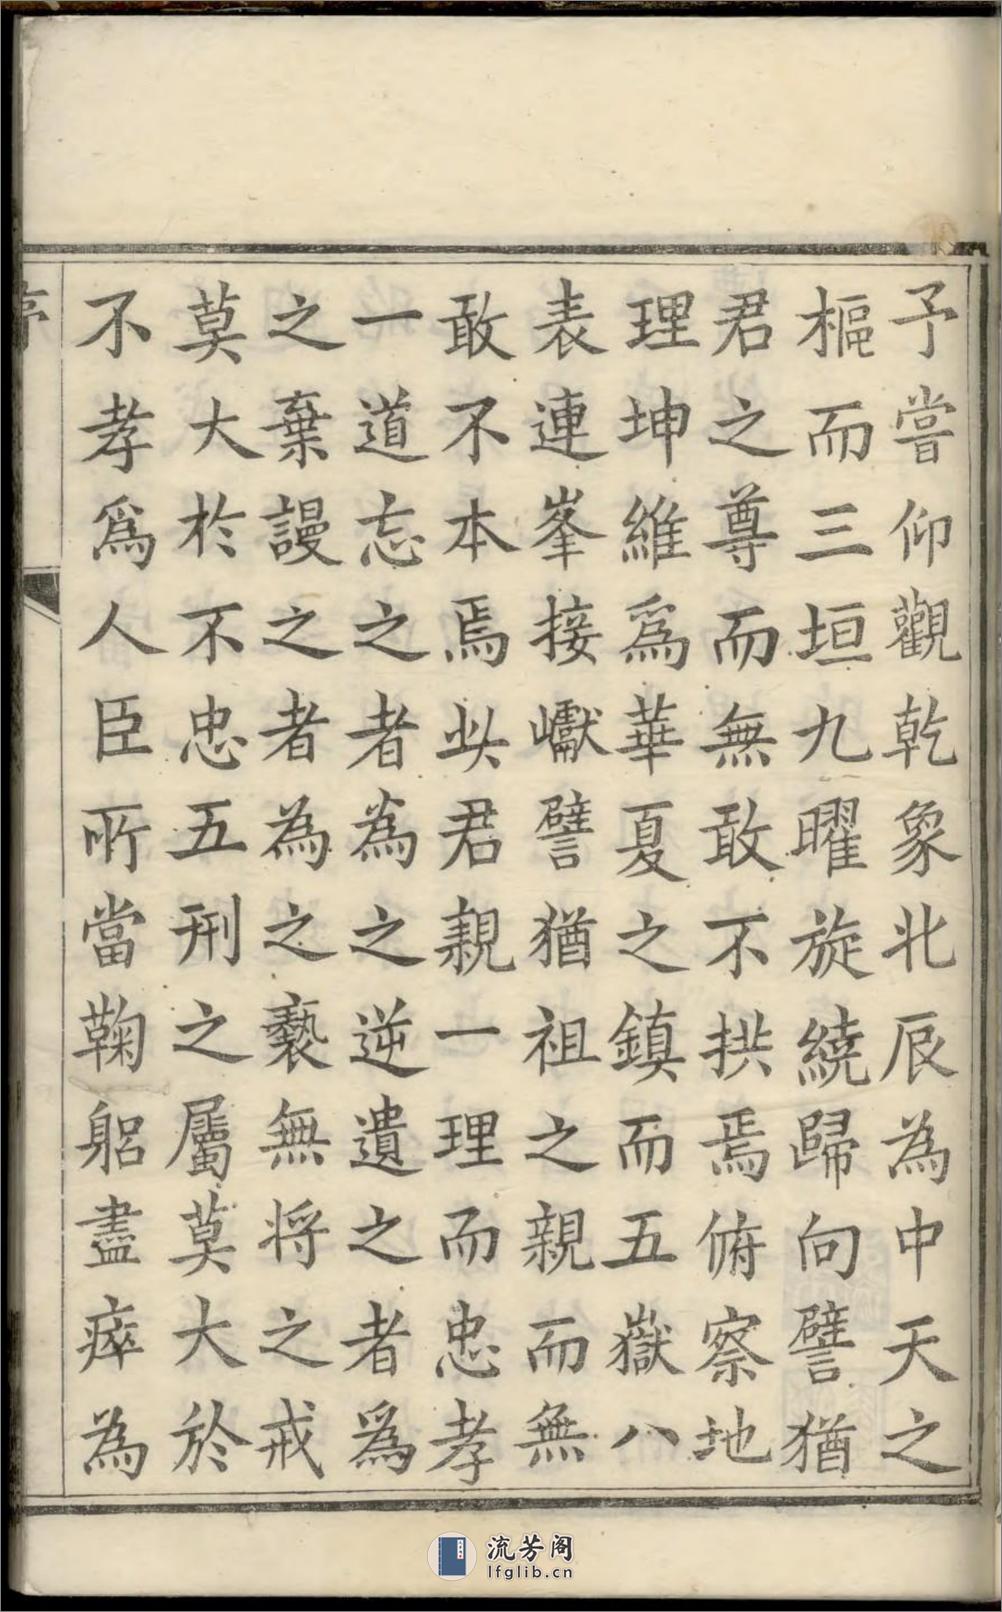 予嘗仰觀乾象北辰為中天之
樞而三垣九曜旋繞歸向譬猶
君之尊而無敢不拱焉俯察地
理坤維爲華夏之鎮而五嶽八
表連峯接巘譬猶祖之親而無
敢不本焉此君親一理而忠孝
一道忘之者為之逆遺之者爲
之棄謾之者為之褻無将之戒
莫大於不忠五刑之屬莫大於
不孝爲人臣所當鞠躳盡瘁為
序
流芳阁
lfglib.cn